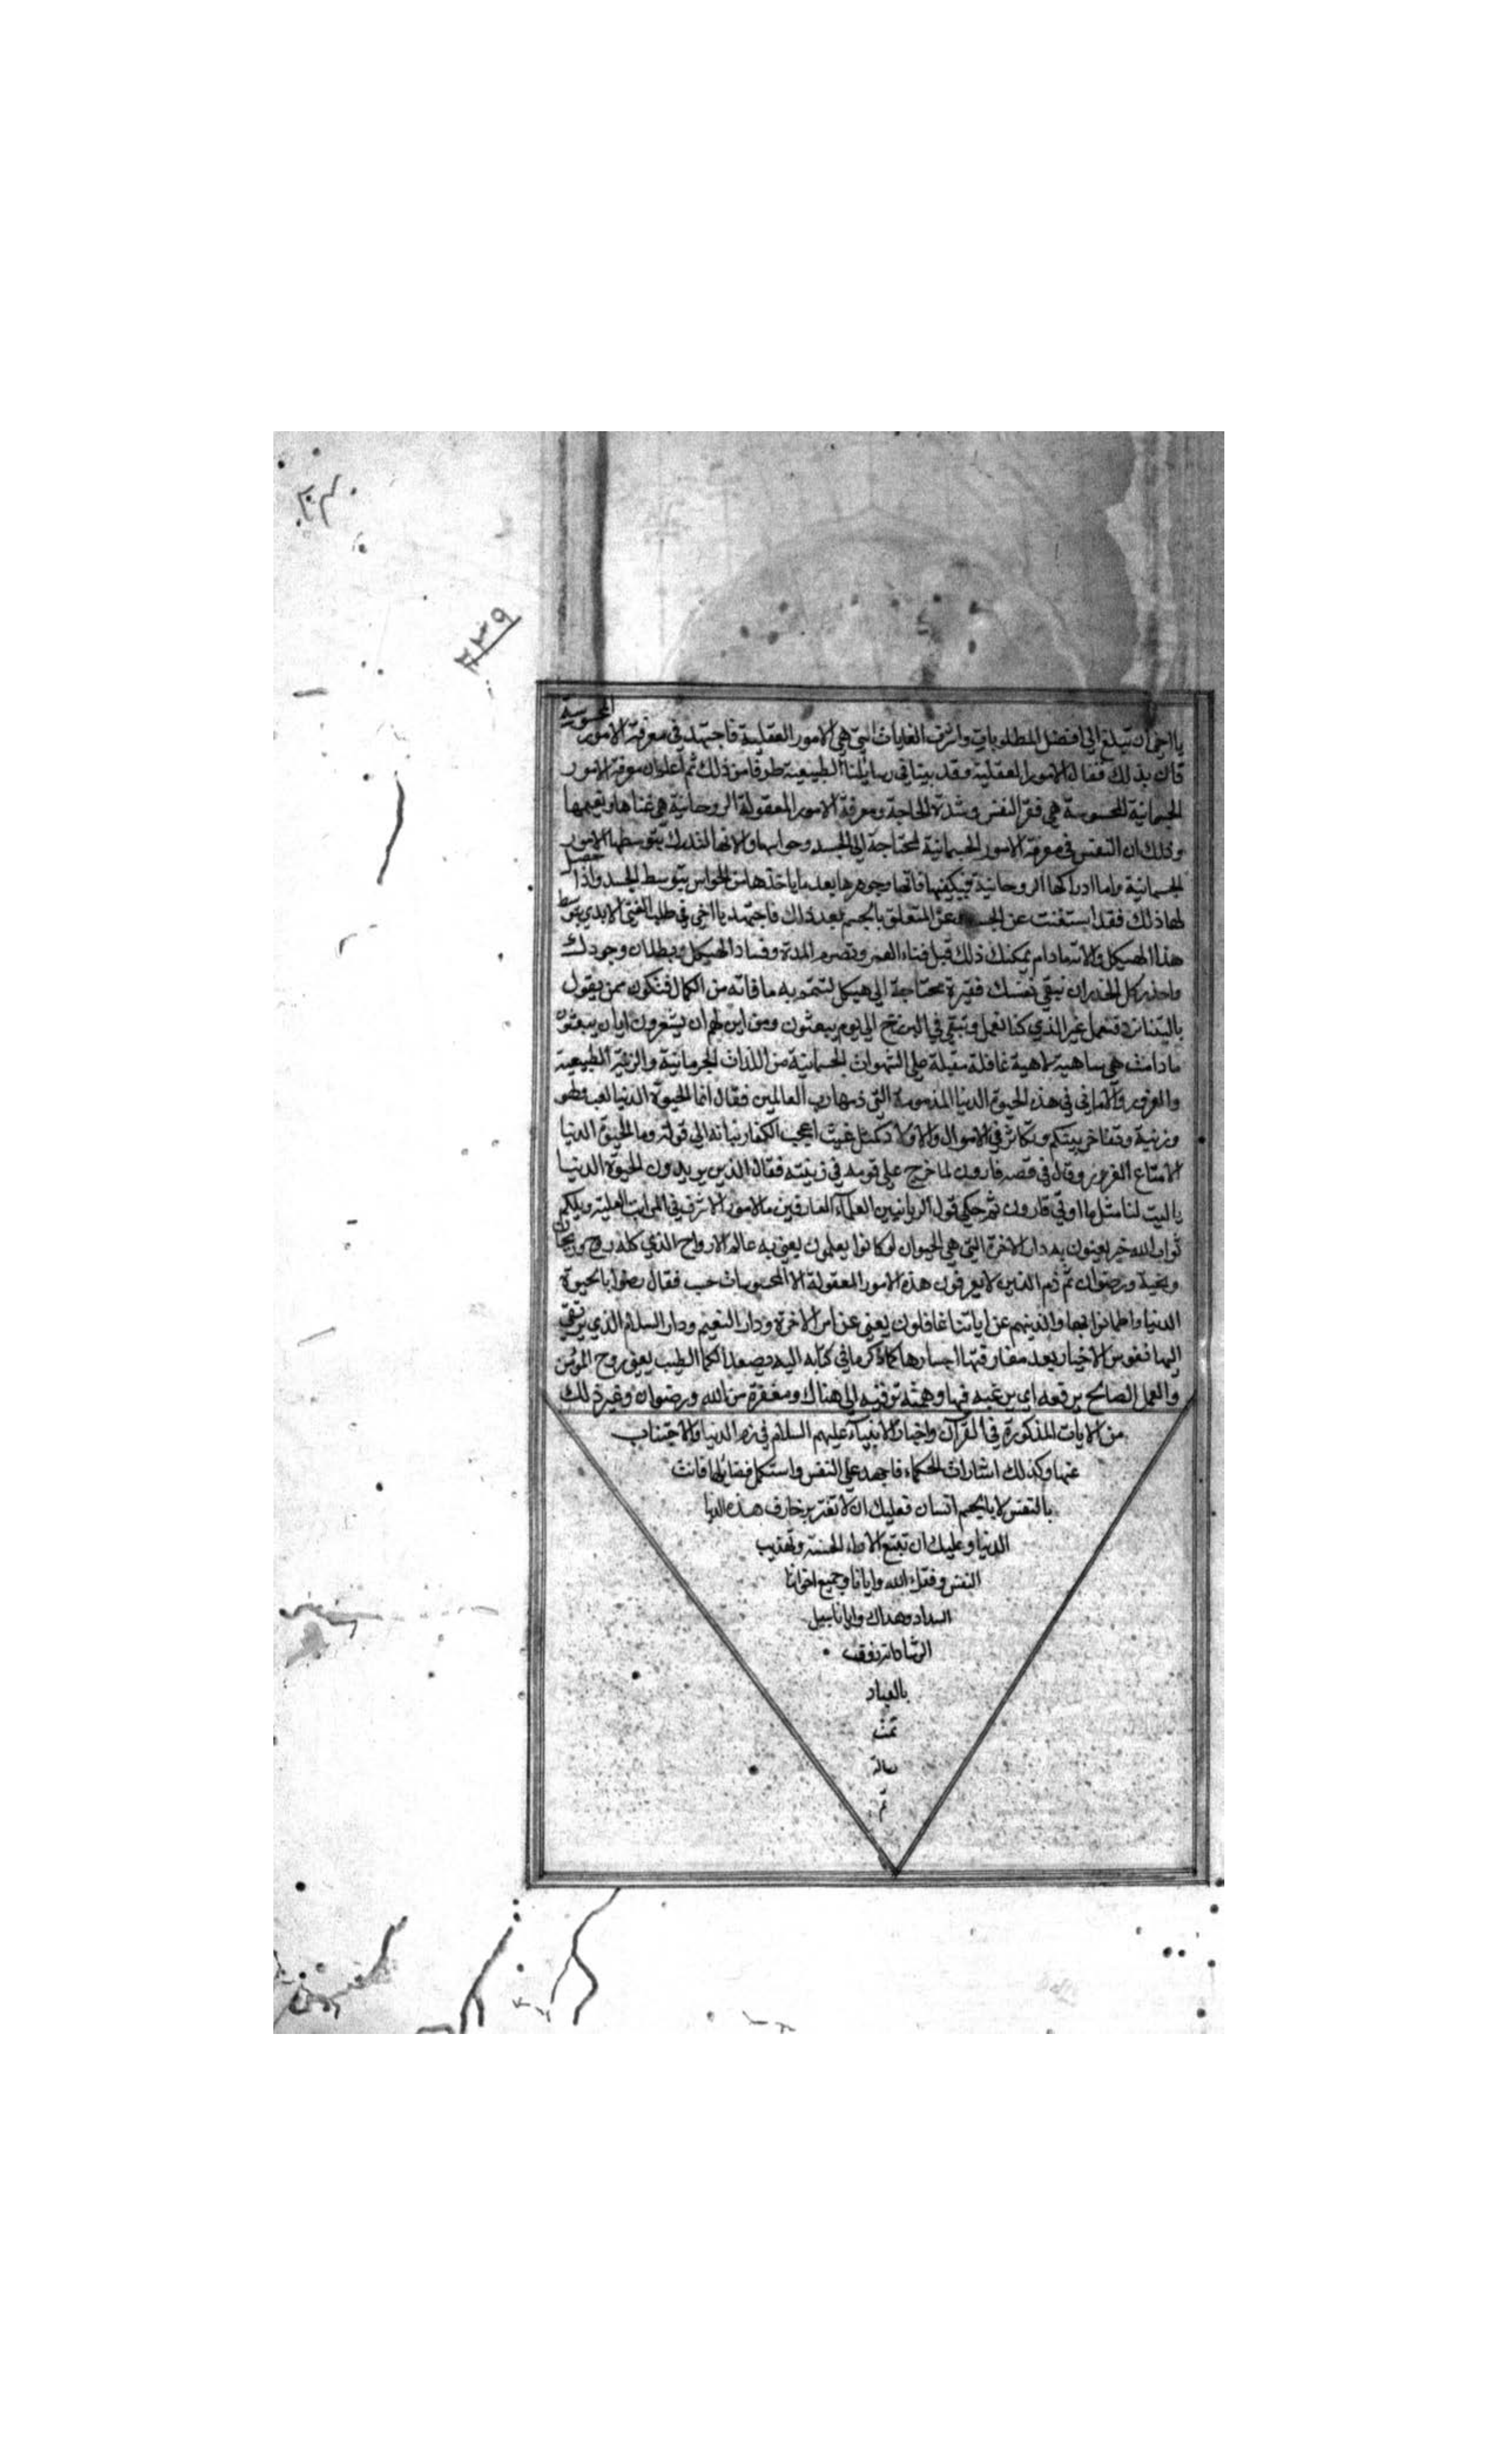 ٢٣٩
يا اخي ان تبلغ الي افضل المطلوبات واشرف الغايات التي هي الامور العقلية فاجتهد في معرفة الامور المحسوسة
فان بذلك تنال الامور العقلية وقد بينا في رسايلنا الطبيعية طرفا من ذلك ثم اعلم ان معرفة الامور
الجسمانية المحسوسة هي فقر النفس وشدة الحاجة ومعرفة الامور المعقولة الروحانية هي غناها ونعيمها
وذلك ان النفس في معرفة الامور الجسمانية محتاجة الي الجسد وحواسها والاتها لتدرك بتوسطها الامور
الجسمانية واما ادراكها الروحانية فيكفيها ذاتها وجوهرها بعد ما ياخذها من الحواس بتوسط الجسد واذا حصل
لها ذلك فقد استغنت عن الجسد وعن المتعلق بالجسم بعد ذلك فاجتهد يا اخي في طلب الغني الابدي بتوسط
هذا الهيكل والاته مادام يمكنك ذلك قبل فناء العمر وتصرم المدة وفساد الهيكل وبطلان وجودك
واحذر كل الحذر ان تبقي نفسك فقيرة محتاجة الي هيكل لتتم به ما فاته من الكمال فتكون ممن يقول
ياليتنا نرد فنعمل غير الذي كنا نعمل وتبقي في البرزخ الي يوم يبعثون ومن اين لهم ان يشعرون ايان يبعثون
مادامت هي ساهية لاهية غافلة مقبلة علي الشهوات الجسمانية من اللذات الجرمانية والزينة الطبيعية
والغرور والاماني في هذه الحيوة الدنيا المذمومة التي ذمها رب العالمين فقال انما الحيوة الدنيا لعب ولهو
وزينة وتفاخر بينكم وتكاثر في الاموال والاولاد كمثل غيث اعجب الكفار نباته الي قوله وما الحيوة الدنيا
الا متاع الغرور وقال في قصه قارون لما خرج علي قومه في زينته فقال الذين يريدون الحيوة الدنيا
ياليت لنا مثل ما اوتي قارون ثم حكي قول الربانيين العلماء العارفين بالامور الاشرف في المراتب العلية ويلكم
ثواب الله خير يعنون به دار الاخرة التي هي الحيوان لو كانوا يعلمون يعني به عالم الارواح الذي كله روح وريحان
وتحية ورضوان ثم ذم الذين لا يعرفون هذه الامور المعقولة الا المحسوسات حسب فقال رضوا بالحيوة
الدنيا واطمانوا بها والذينهم عن اياتنا غافلون يعني عن امر الاخرة ودار النعيم ودار السلام الذي يرتقي
اليها نفوس الاخيار بعد مفارقتها اجسادها كما ذكر ما في كتابه اليه يصعد الكلم الطيب يعني روح المؤمن
والعمل الصالح يرفعه اي يرغبه فيها وهمته توفيه الي هناك ومغفرة من الله ورضوان وغير ذلك
من الايات المذكورة في القرآن واخبار الانبياء عليهم السلام في ذم الدنيا والاجتناب
عنها وكذلك اشارات الحكماء فاجهد علي النفس واستكمل فضايلها فانت
بالنفس لا بالجسم انسان فعليك ان لا تغتر بزخارف هذه الدنيا
الدنيا وعليك ان تتبع الحسنة وتهذيب
النفس وفقك الله وايانا وجميع اخواننا
السداد وهداك وايانا سبيل
الرشاد انه رؤف
بالعباد
تمت
رسالة
تم